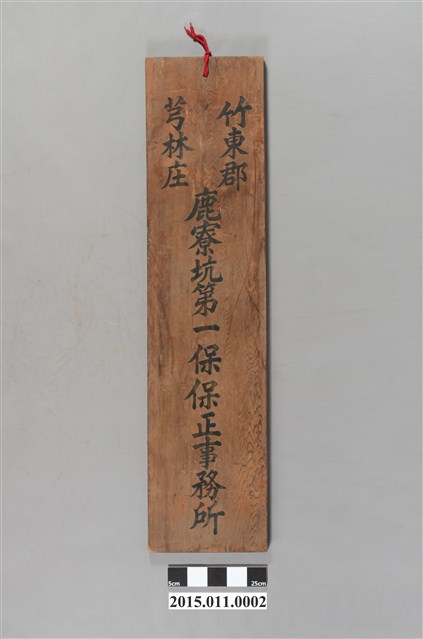 竹東郡
芎林庄
鹿寮坑第一保保正事務所
5cm 25cm
2015.011.0002